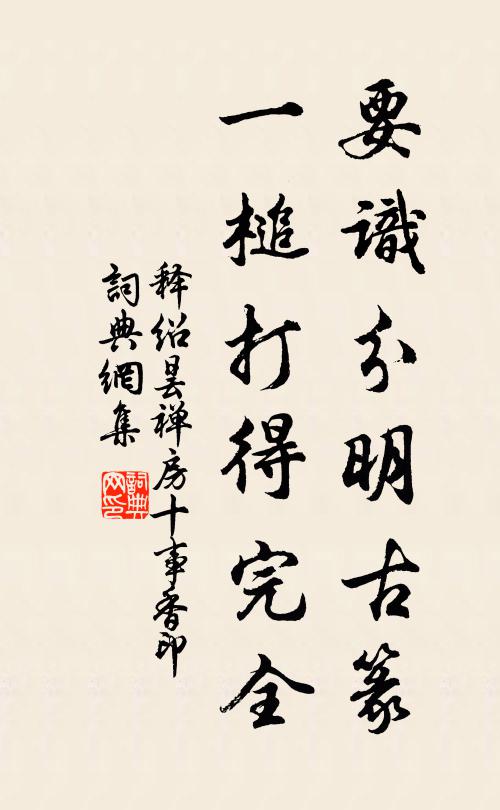 要識分明古篆
一槌打得完全
释绍昙禅房十事香印
詞典網集
詞典网印